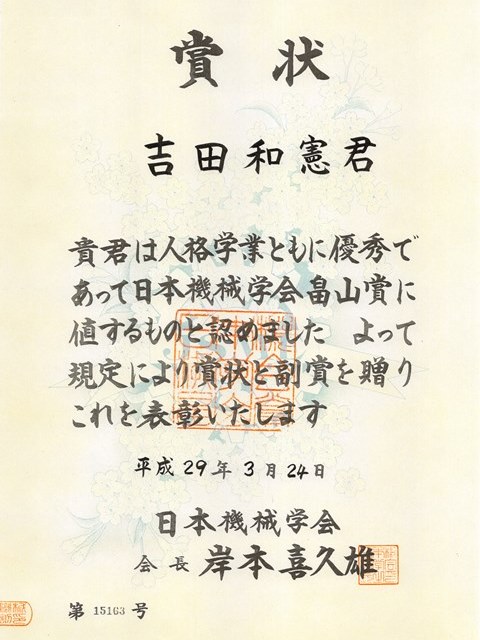 賞状
吉田和憲君
貴君は人格学業ともに優秀で
あって日本機械学会畠山賞に
値するものと認めました　よって
規定により賞状と副賞を贈り
これを表彰いたします
平成29年3月24日
日本機械学会
会長 岸本喜久雄
第 15163 号